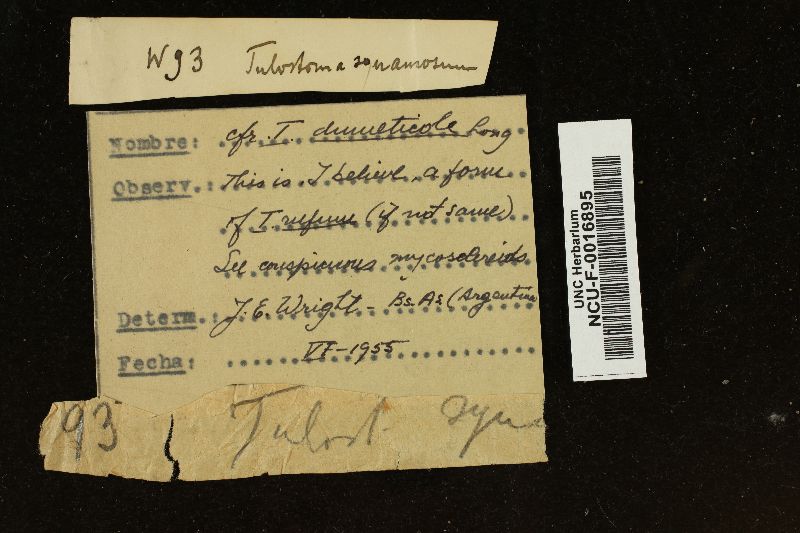 W 93 Tulostoma squamosum
Nombre: cfr. T. dumeticole Long
Observ.: This is I believe a form
of T. rufum (if not same)
See conspicuous mycosclereids
Determ.: J. E. Wright - Bs. As (Argentina
Fecha: VI-1955
93 Tulost. squa
UNC Herbarium
NCU-F-0016895